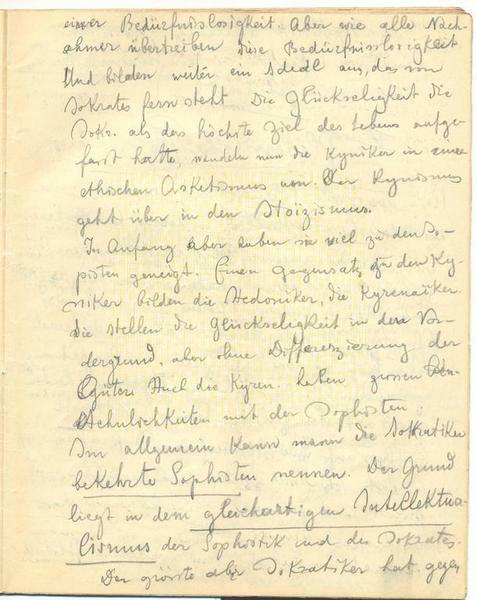 einer Bedürfnisslosigkeit. Aber wie alle Nach-
ahmer übertreiben diese Bedürfnisslosigkeit
Und bilden weiter ein Ideal aus, das von
Sokrates fern steht. Die Glückseligkeit die
Sokr. als das höchste Ziel des Lebens aufge-
fasst hatte, wandeln nun die Kyniker in einen
ethischen Asketismus um. Der Kynismus
geht über in den Stoizismus.
In Anfang aber haben sie viel zu den So-
pisten geneigt. Einen Gegensatz zu den Ky-
niker bilden die Hedoniker, die Kyrenaiker.
Die stellen die Glückseligkeit in den Vor-
dergrund, aber ohne Differenzierung der
Güter. Auch die Kyren. haben grossen
Aehnlichkeiten mit der Sophisten.
Im allgemein kann mann die Sokratiker
bekehrte Sophisten nennen. Der Grund
liegt in dem gleichartigen Intellektua-
lismus der Sophistik und des Sokrates.
Der grösste aller Sokratiker hat gegen